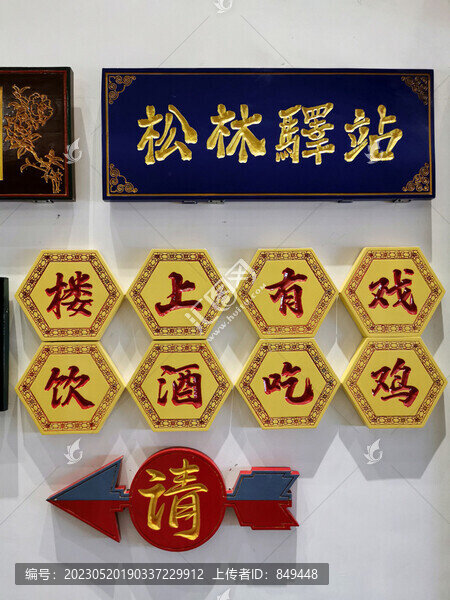 松林驛站
楼上有戏
饮酒吃鸡
请
编号：20230520190337229912 上传者ID：849448